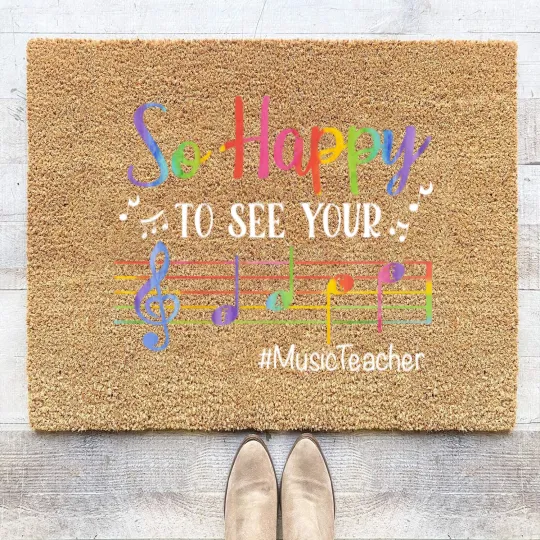 So Happy
TO SEE YOUR
#MusicTeacher